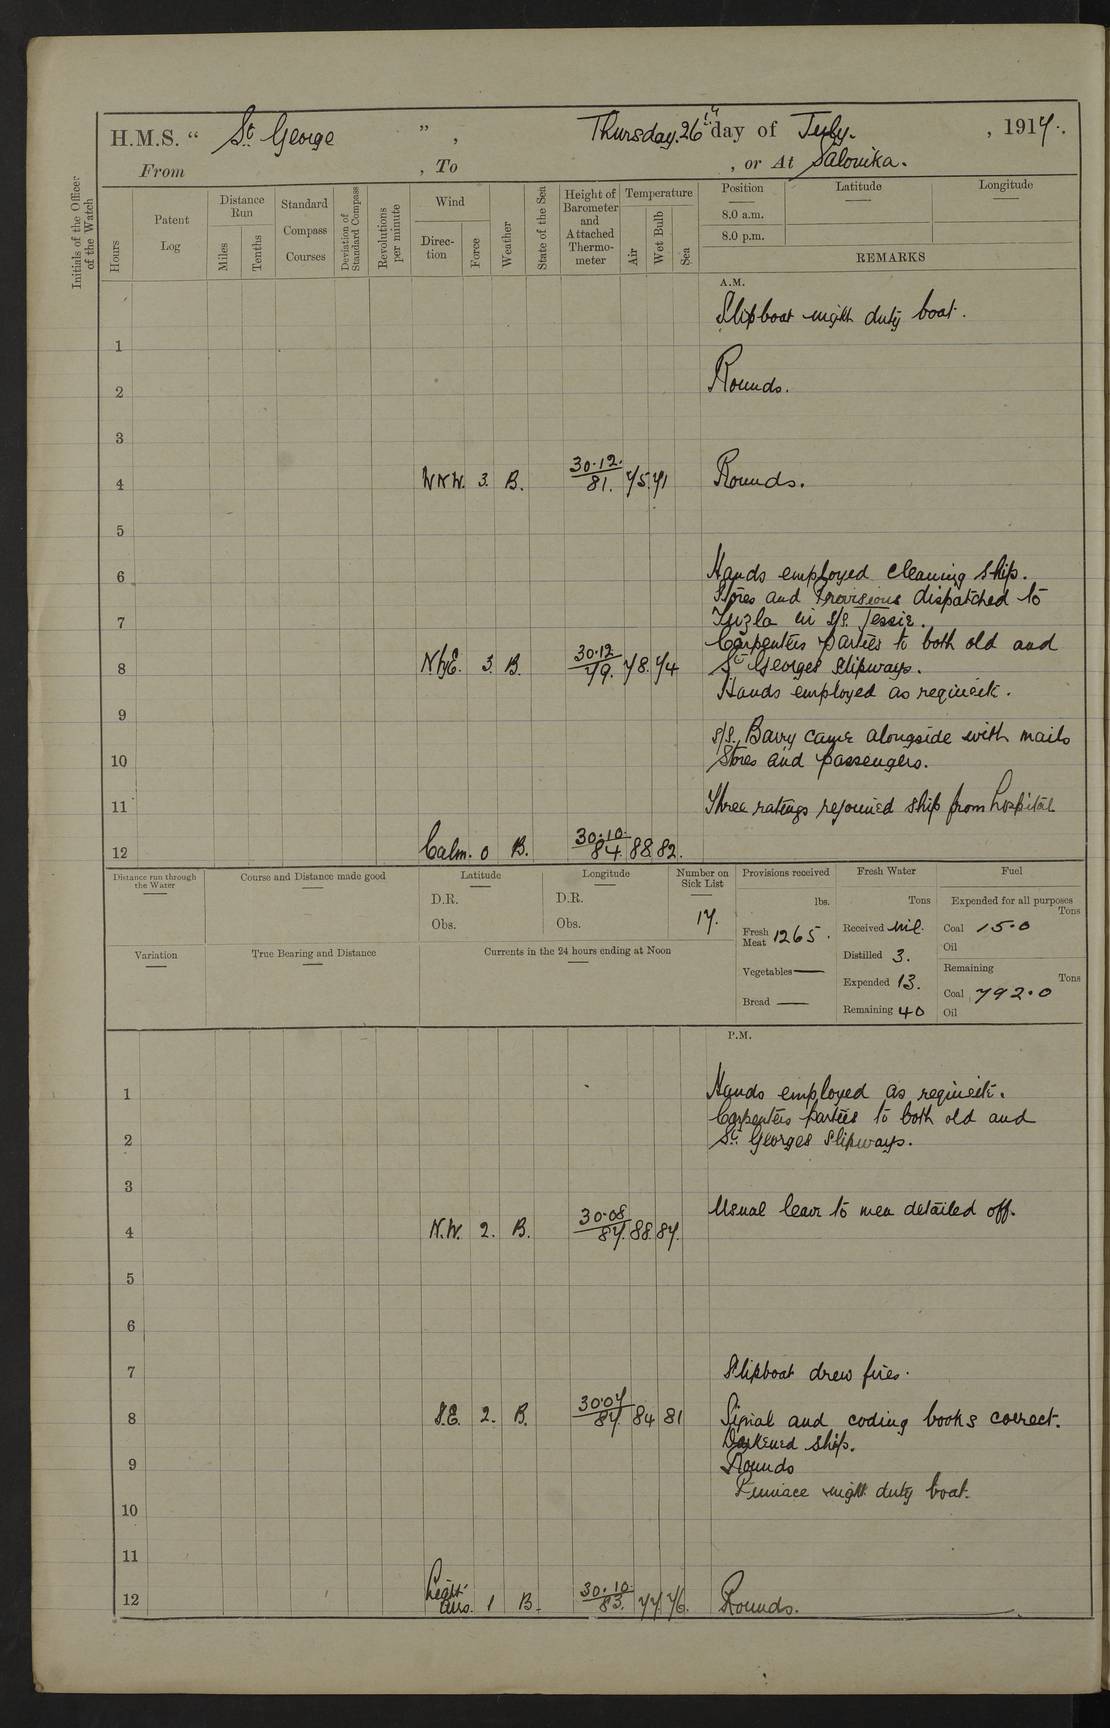 H.M.S. “ St. George ” , Thursday. 26th day of July. , 1917.
From , To , or At Salonika.
Initials of the Officer of the Watch
Hours
Patent Log
Distance Run
Miles
Tenths
Standard Compass Courses
Deviation of Standard Compass
Revolutions per minute
Wind
Direction
Force
Weather
State of the Sea
Height of Barometer and Attached Thermometer
Temperature
Air
Wet Bulb
Sea
Position
Latitude
Longitude
8.0 a.m.
8.0 p.m.
REMARKS
A.M.
Slipboat night duty boat.
1
2 Rounds.
3
4 WNW. 3. B. 30.12. 81. 75. 71 Rounds.
5
6 Hands employed cleaning ship.
Stores and Provisions dispatched to
7 Tuzla in s/s. Jessie.
Carpenters parties to both old and
8 NbyE. 3. B. 30.12 79. 78. 74 St Georges slipways.
Hands employed as requisite.
9
s/s. Barry came alongside with mails
10 Stores and passengers.
11 Three ratings rejoined ship from hospital
12 Calm. 0 B. 30.10. 84. 88. 82.
Distance run through the Water
Course and Distance made good
Latitude
D.R.
Obs.
Longitude
D.R.
Obs.
Number on Sick List
17.
Provisions received
lbs.
Fresh Meat 1265.
Vegetables —
Bread —
Fresh Water
Tons
Received nil.
Distilled 3.
Expended 13.
Remaining 40
Fuel
Expended for all purposes
Tons
Coal 15.0
Oil
Remaining
Tons
Coal 792.0
Oil
Variation
True Bearing and Distance
Currents in the 24 hours ending at Noon
P.M.
1 Hands employed as requisite.
Carpenters parties to both old and
2 St. Georges slipways.
3
Usual leave to men detailed off.
4 N.W. 2. B. 30.08 87. 88. 87.
5
6
7 Slipboat drew fires.
8 S.E. 2. B. 30.07 87. 84 81 Signal and coding books correct.
Darkened ship.
9 Rounds
Pinnace night duty boat.
10
11
12 Light airs. 1 B. 30.10. 83. 77. 76. Rounds.